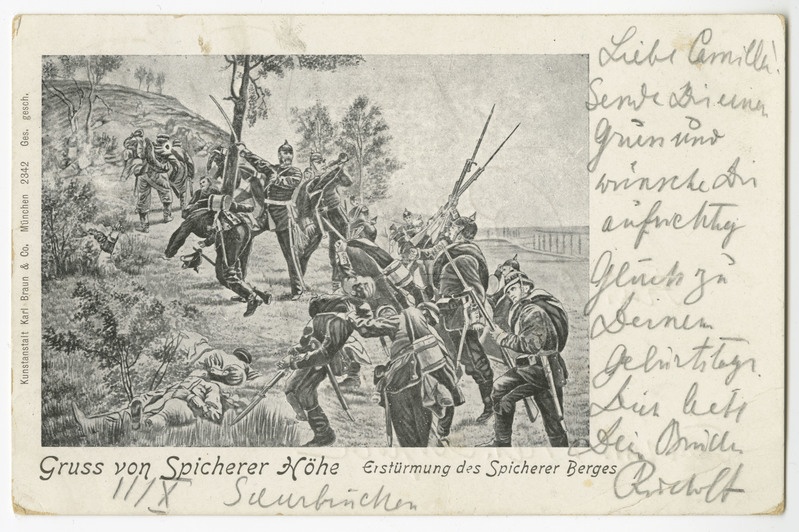 Kunstanstalt Karl Braun & Co. München 2342 Ges. gesch.
Gruss von Spicherer Höhe Erstürmung des Spicherer Berges
11/X Saarbrücken
Liebe Camilla!
Sende Dir einen
Gruss und
wünsche Dir
aufrichtig
Glück zu
Deinem
Geburtstage.
Dein
Rudolf